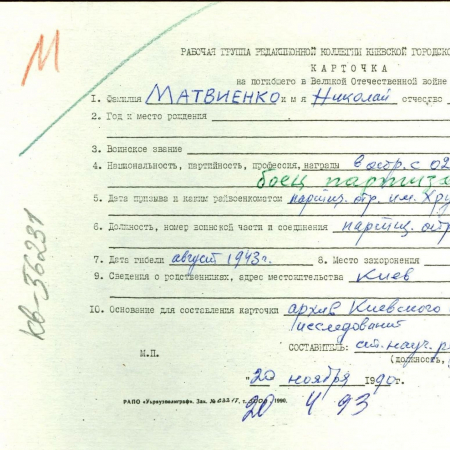 М
РАБОЧАЯ ГРУППА РЕДАКЦИОННОЙ КОЛЛЕГИИ КИЕВСКОЙ ГОРОДСКО
КАРТОЧКА
на погибшего в Великой Отечественной войне
1. Фамилия МАТВИЕНКО имя Николай отчество
2. Год и место рождения
3. Воинское звание
4. Национальность, партийность, профессия, награды в отр. с 02
боец партиза
5. Дата призыва и каким райвоенкоматом партиз. отр. им. Хру
6. Должность, номер воинской части и соединения партиз. отр
7. Дата гибели август 1943г. 8. Место захоронения
9. Сведения о родственниках, адрес местожительства Киев
10. Основание для составления карточки архив Киевского
СОСТАВИТЕЛЬ: ст. науч. р
М.П. (должность,
"20 ноября 1990г.
РАПО «Укрвузполиграф». Зак. 1990.
20 4 93
КВ-36231